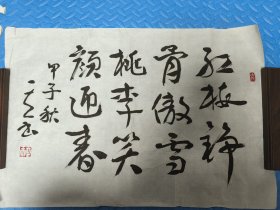 红梅铮
骨傲雪
桃李笑
颜迎春
甲子秋